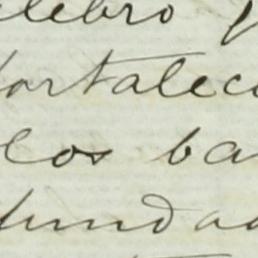 elebro y
fortalec
los ba
fundad